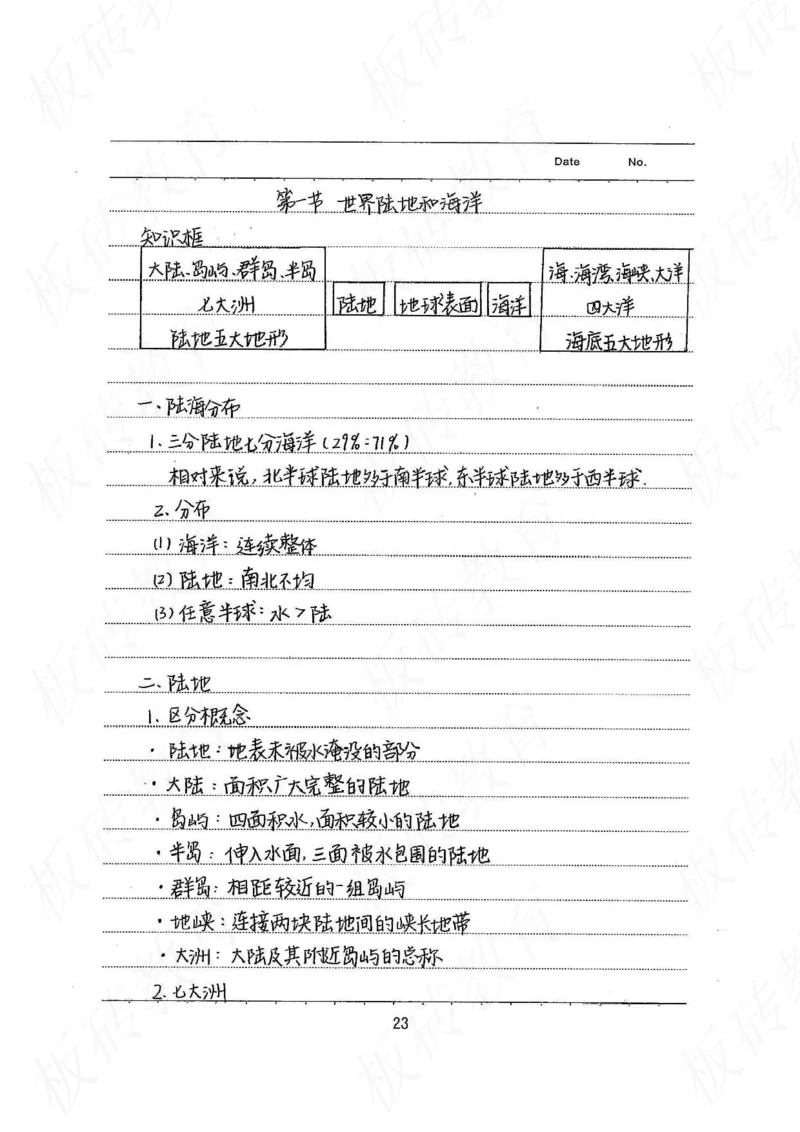 Date No.
第一节 世界陆地和海洋
知识框
大陆、岛屿、群岛、半岛
七大洲
陆地五大地形
陆地
地球表面
海洋
海、海湾、海峡、大洋
四大洋
海底五大地形
一、陆海分布
1. 三分陆地七分海洋(29%:71%)
相对来说,北半球陆地多于南半球,东半球陆地多于西半球.
2. 分布
(1) 海洋:连续整体
(2) 陆地:南北不均
(3) 任意半球:水>陆
二、陆地
1. 区分概念
· 陆地:地表未被水淹没的部分
· 大陆:面积广大完整的陆地
· 岛屿:四面积水,面积较小的陆地
· 半岛:伸入水面,三面被水包围的陆地
· 群岛:相距较近的一组岛屿
· 地峡:连接两块陆地间的峡长地带
· 大洲:大陆及其附近岛屿的总称
2. 七大洲
23
板砖教育